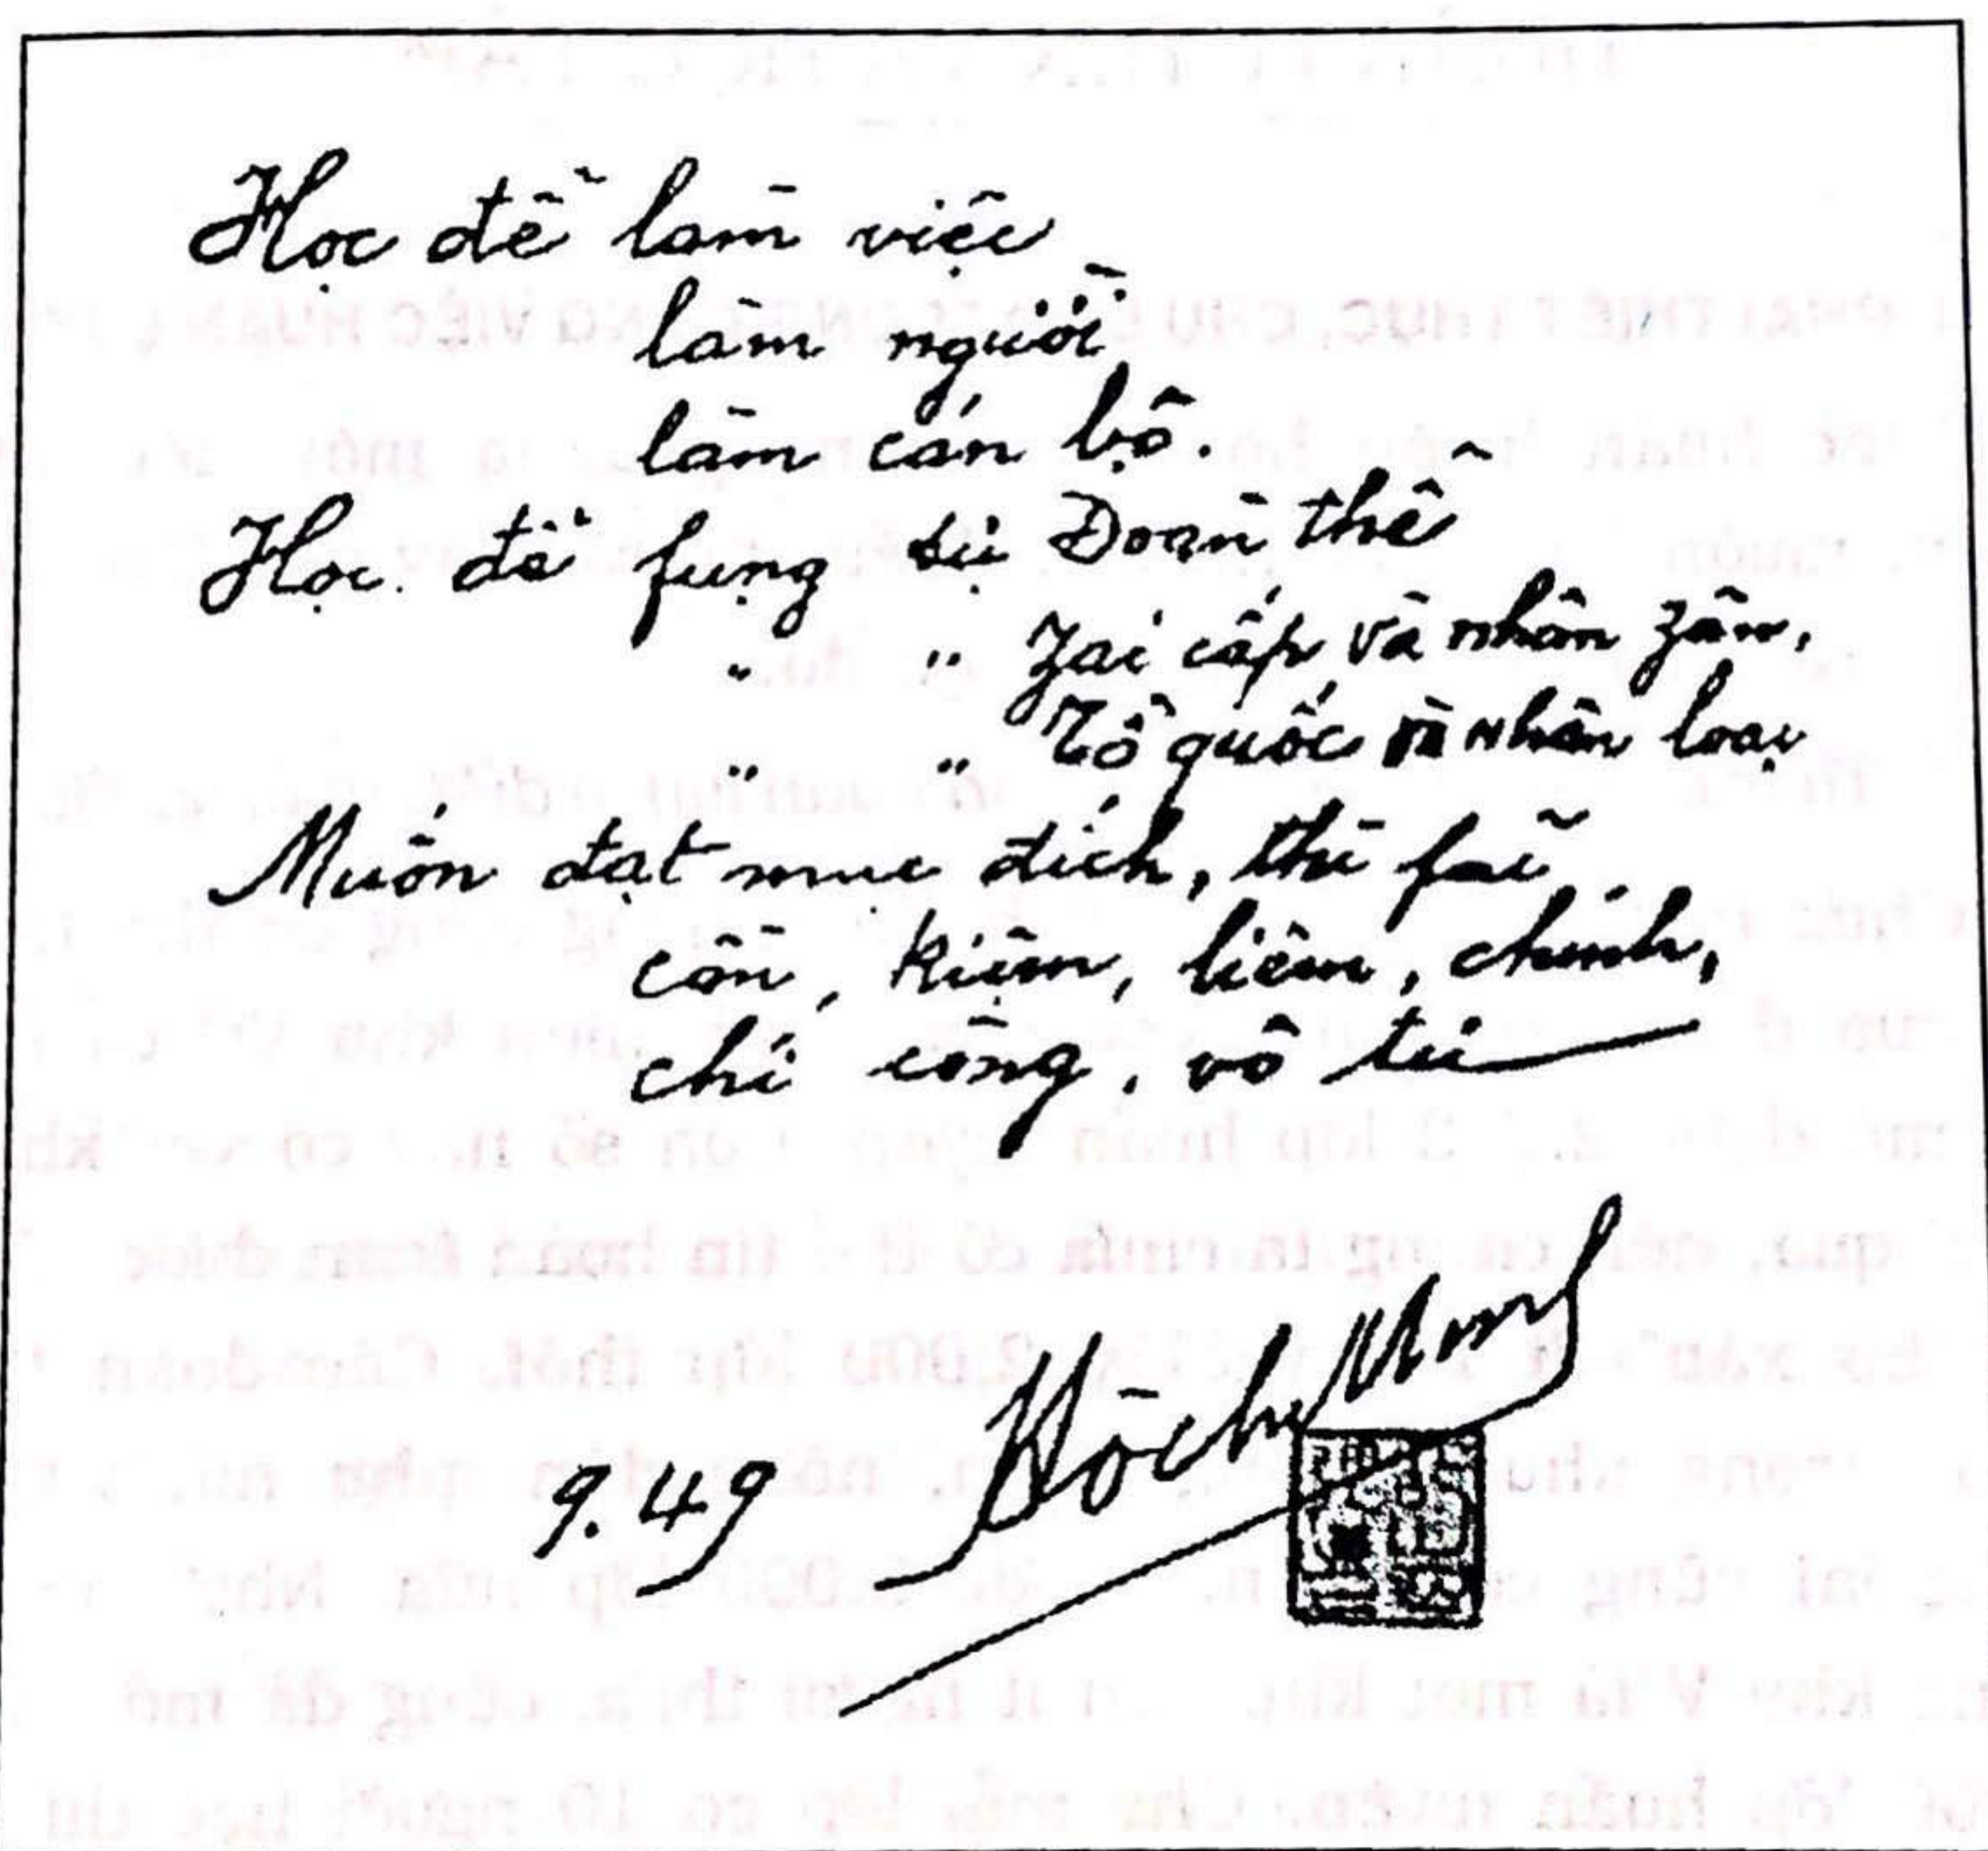 Học để làm việc
làm người
làm cán bộ.
Học để fụng sự Đoàn thể
" " Zai cấp và nhân zân,
" " Tổ quốc và nhân loại
Muốn đạt mục đích, thì fải
cần, kiệm, liêm, chính,
chí công, vô tư
9.49 Hồ Chí Minh